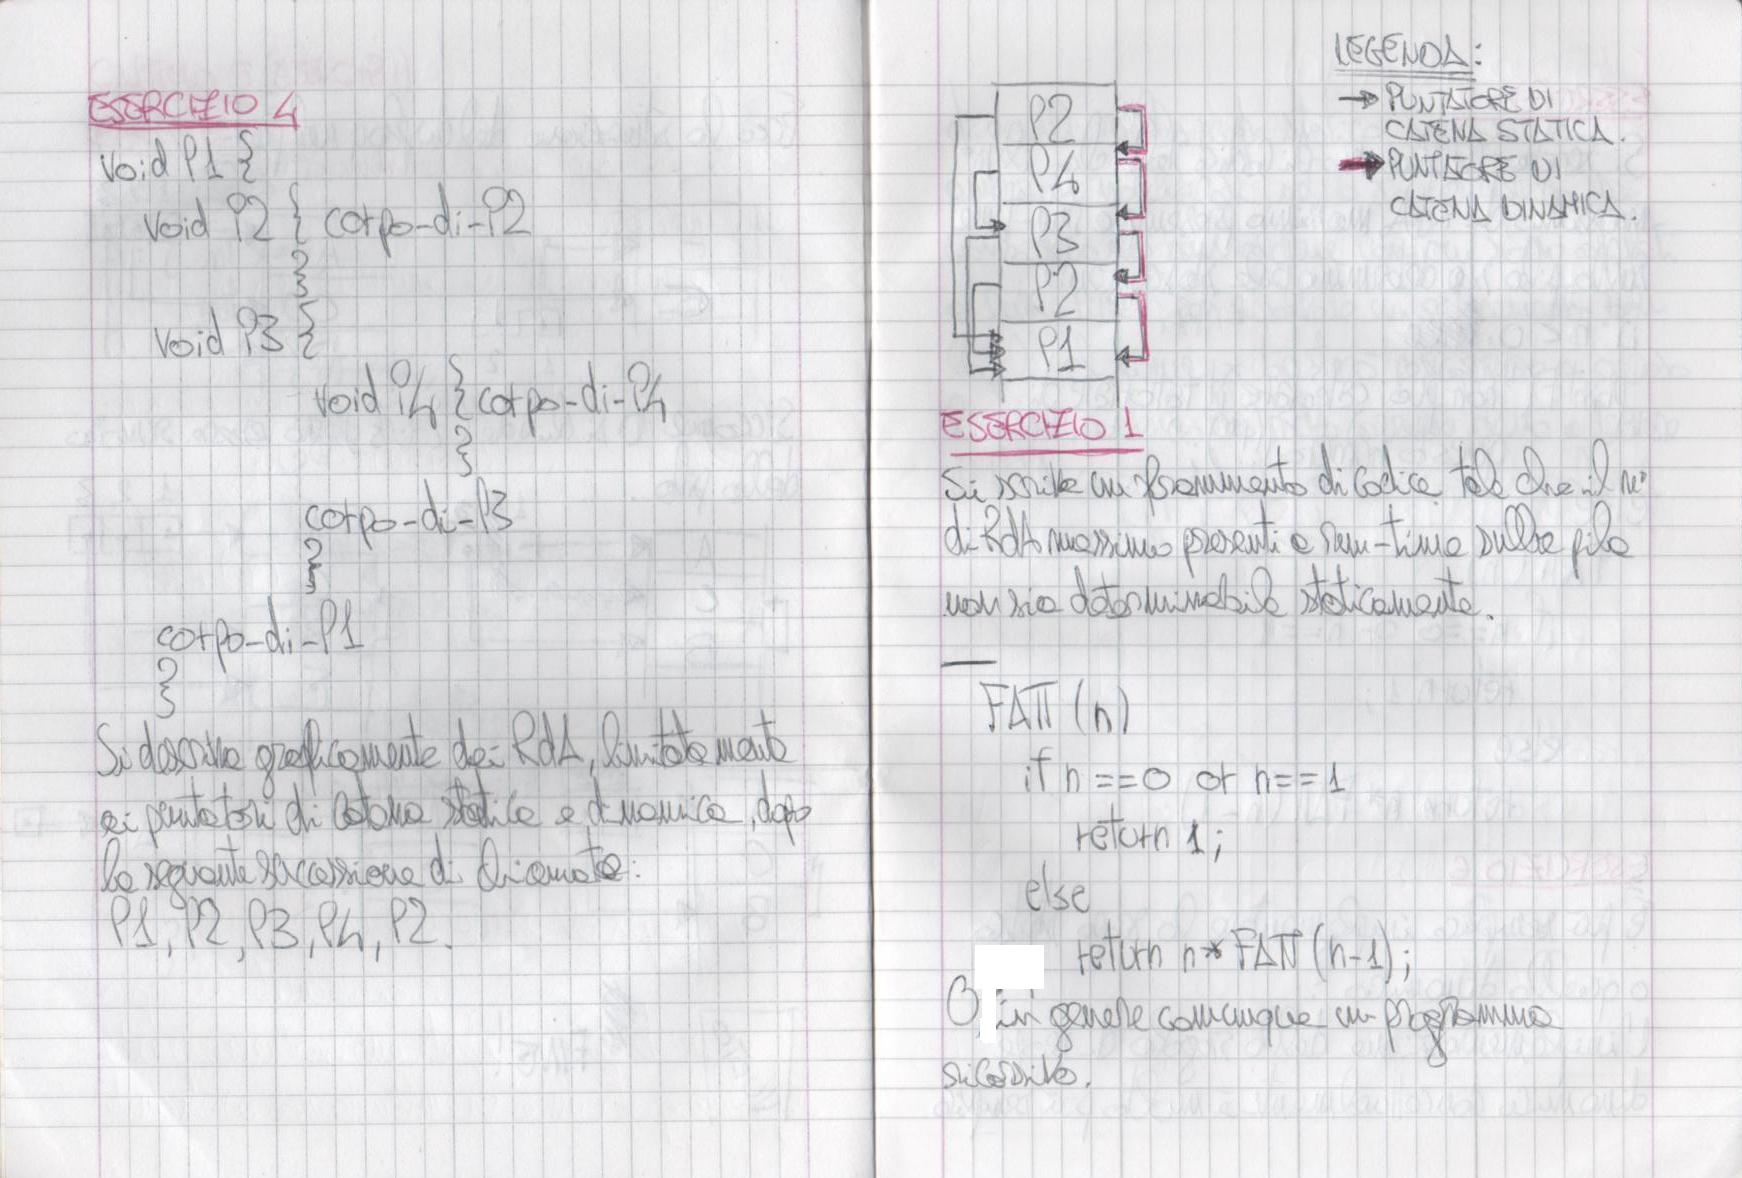 ESERCIZIO 4
void P1 {
void P2 { corpo-di-P2
}
void P3 {
void P4 { corpo-di-P4
}
corpo-di-P3
}
corpo-di-P1
}
Si descriva graficamente dei RdA, limitatamente
ai puntatori di catena statica e dinamica, dopo
la seguente successione di chiamate:
P1, P2, P3, P4, P2.
LEGENDA:
→ PUNTATORE DI
CATENA STATICA.
→ PUNTATORE DI
CATENA DINAMICA.
P2
P4
P3
P2
P1
ESERCIZIO 1
Si scriva un frammento di codice tale che il n°
di RdA massimo presenti a run-time sulla pila
non sia determinabile staticamente.
FATT (n)
if n == 0 or n == 1
return 1;
else
return n * FATT (n-1);
O, in genere comunque un programma
ricorsivo.